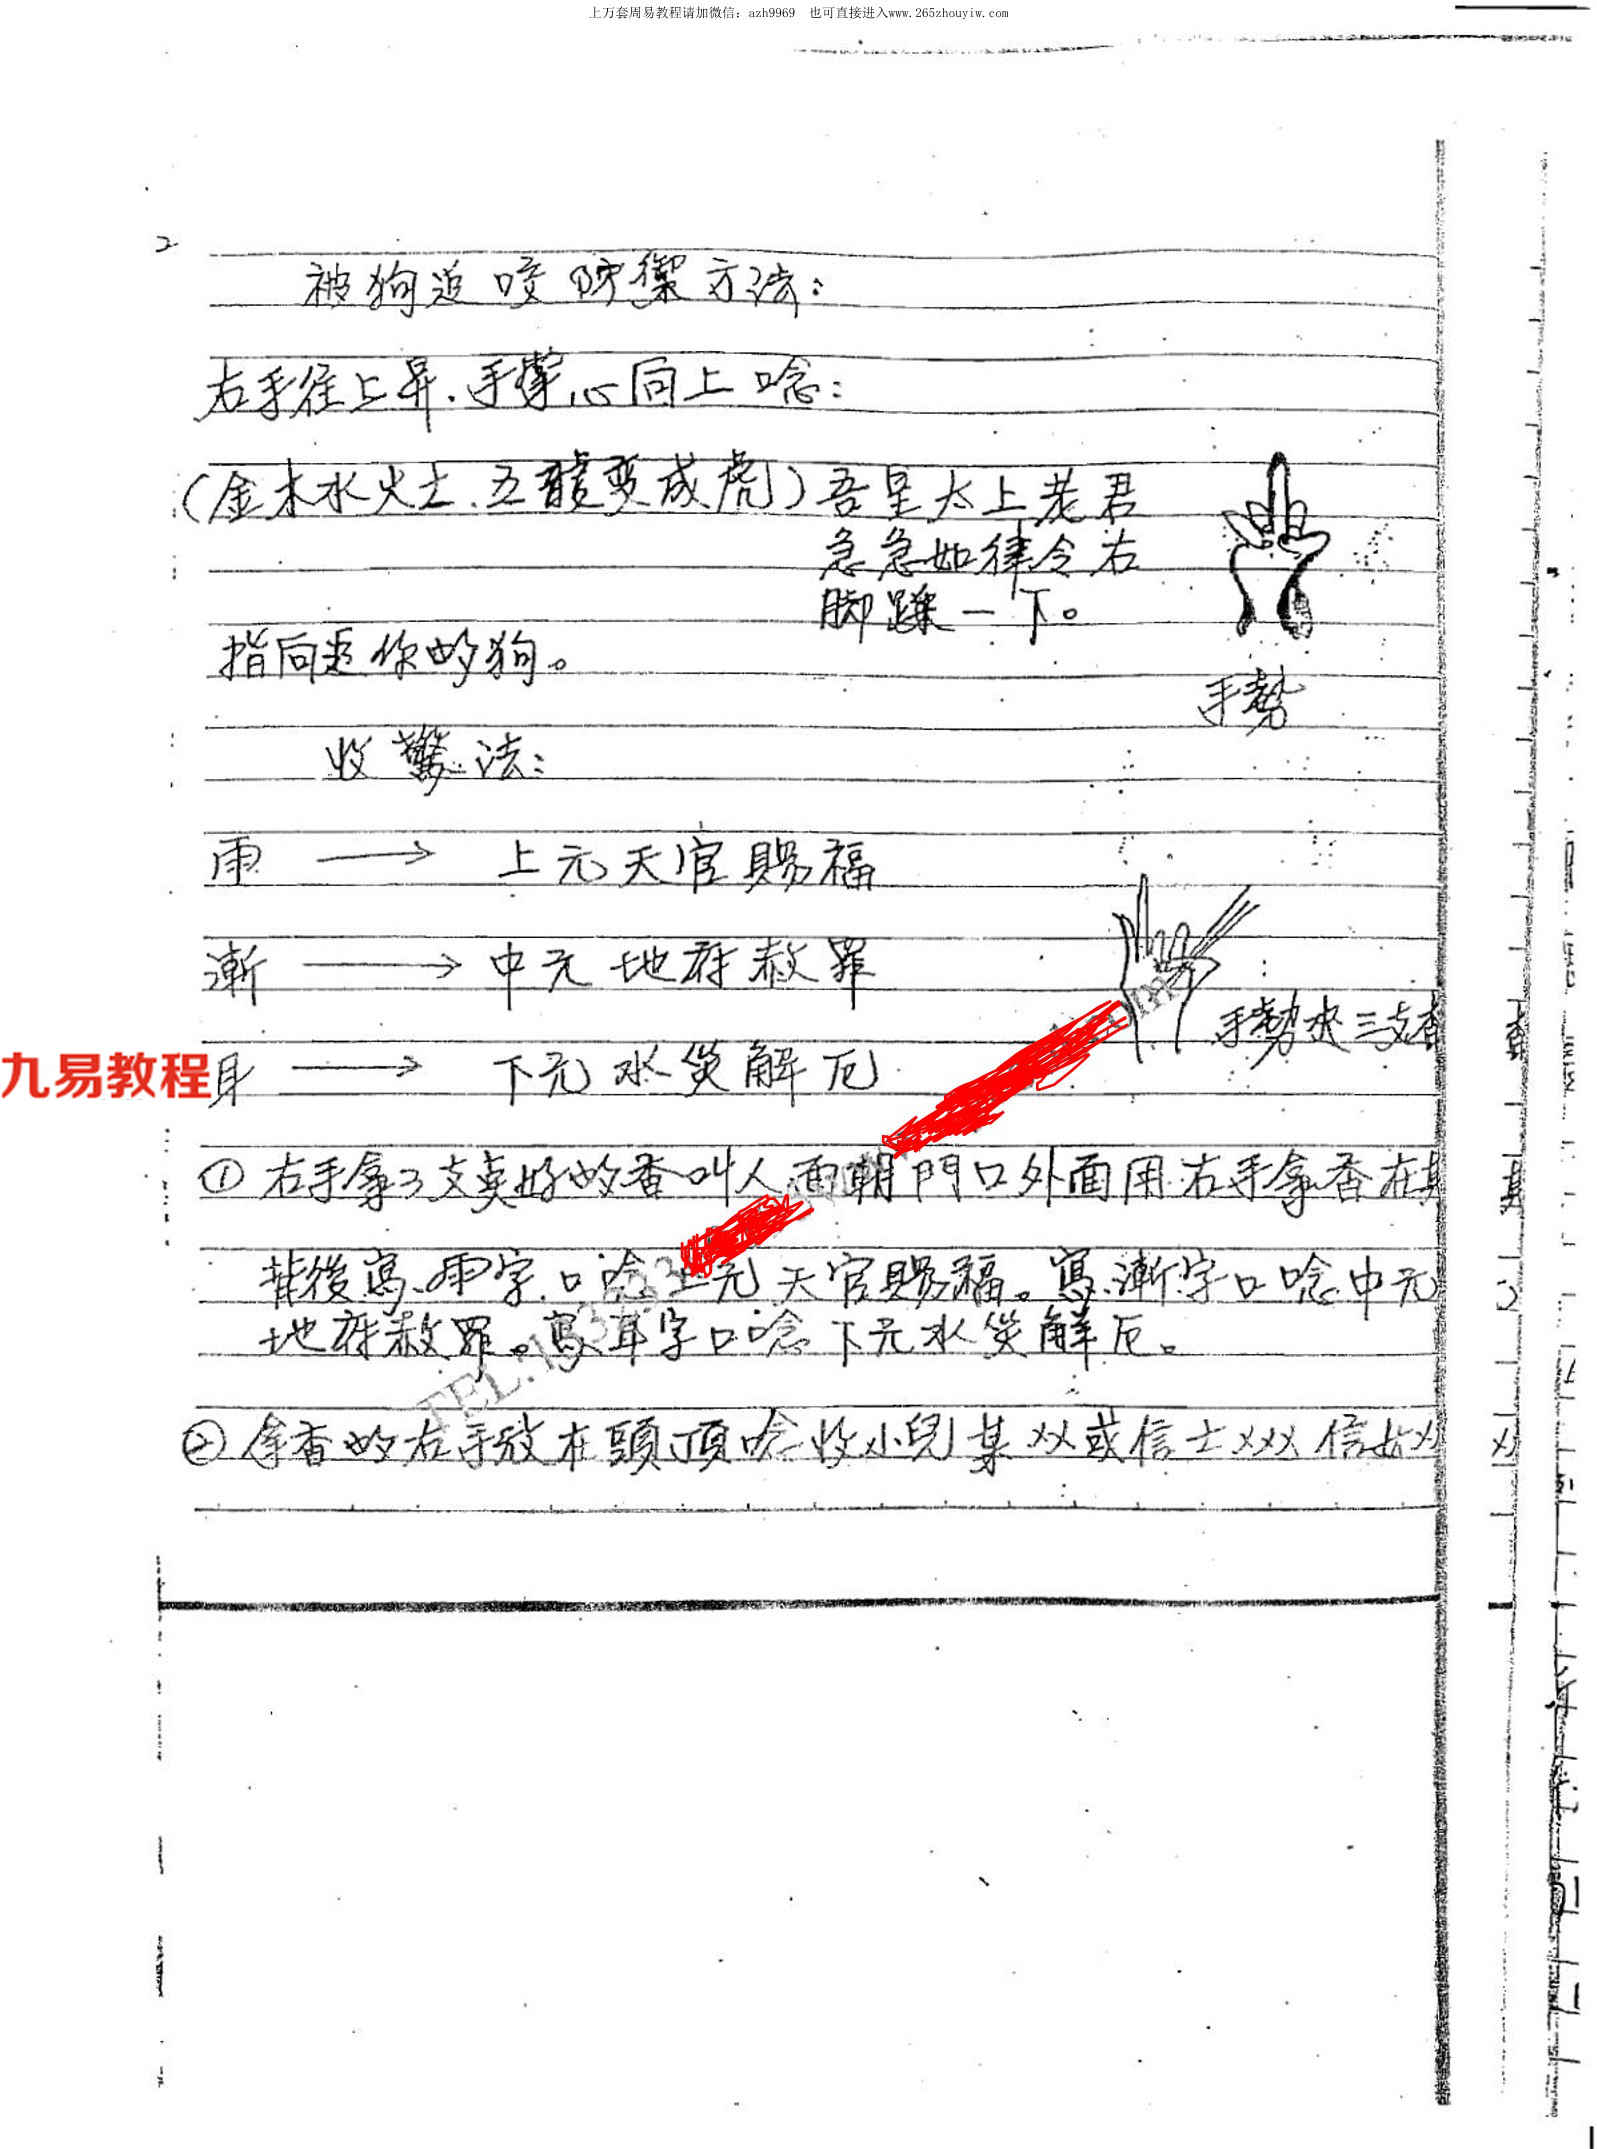 上万套周易教程请加微信：azh9969 也可直接进入www.265zhouyiw.com
2
被狗追咬防禦方法：
右手徃上昇．手掌心向上唸：
(金木水火土．五龍变成虎)吾呈太上老君
急急如律令右
脚踩一下。
指向追你的狗。
手勢
收驚法：
雨 → 上元天官賜福
漸 → 中元地府赦罪
手勢夾三支香
耳 → 下元水災解厄
九易教程
① 右手拿3支奌好的香叫人面朝門口外面用右手拿香在其
背後寫．雨字．口唸上元天官賜福。寫漸字口唸中元
地府赦罪。寫耳字口唸下元水災解厄。
② 拿香的右手放在頭頂唸收小兒某XX或信士XXX信女XX
TEL: